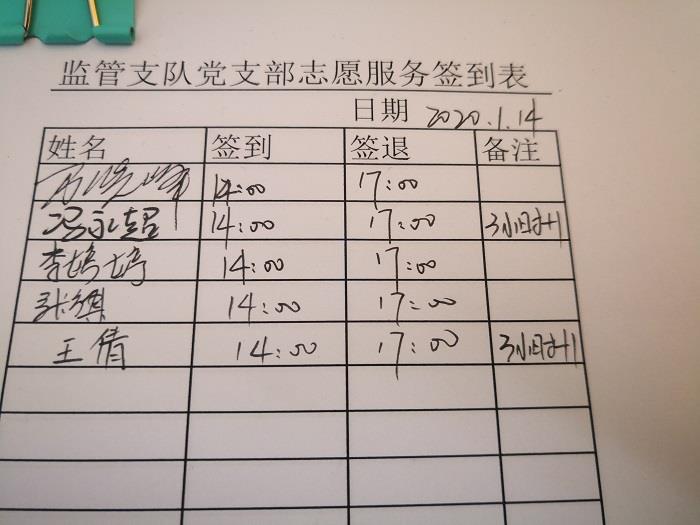 监管支队党支部志愿服务签到表
日期 2020.1.14
姓名 签到 签退 备注
14:00 17:00
冯永超 14:00 17:00 3小时+1
李婷婷 14:00 17:00
张琪 14:00 17:00
王倩 14:00 17:00 3小时+1